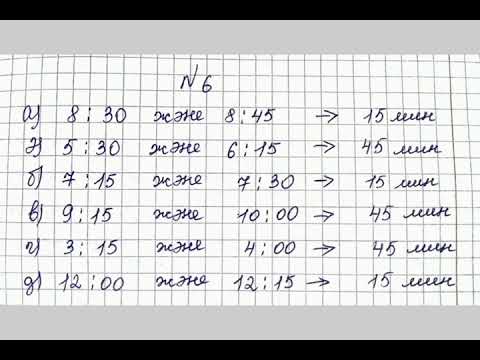 №6
а) 8:30 және 8:45 → 15 мин
ә) 5:30 және 6:15 → 45 мин
б) 7:15 және 7:30 → 15 мин
в) 9:15 және 10:00 → 45 мин
г) 3:15 және 4:00 → 45 мин
д) 12:00 және 12:15 → 15 мин